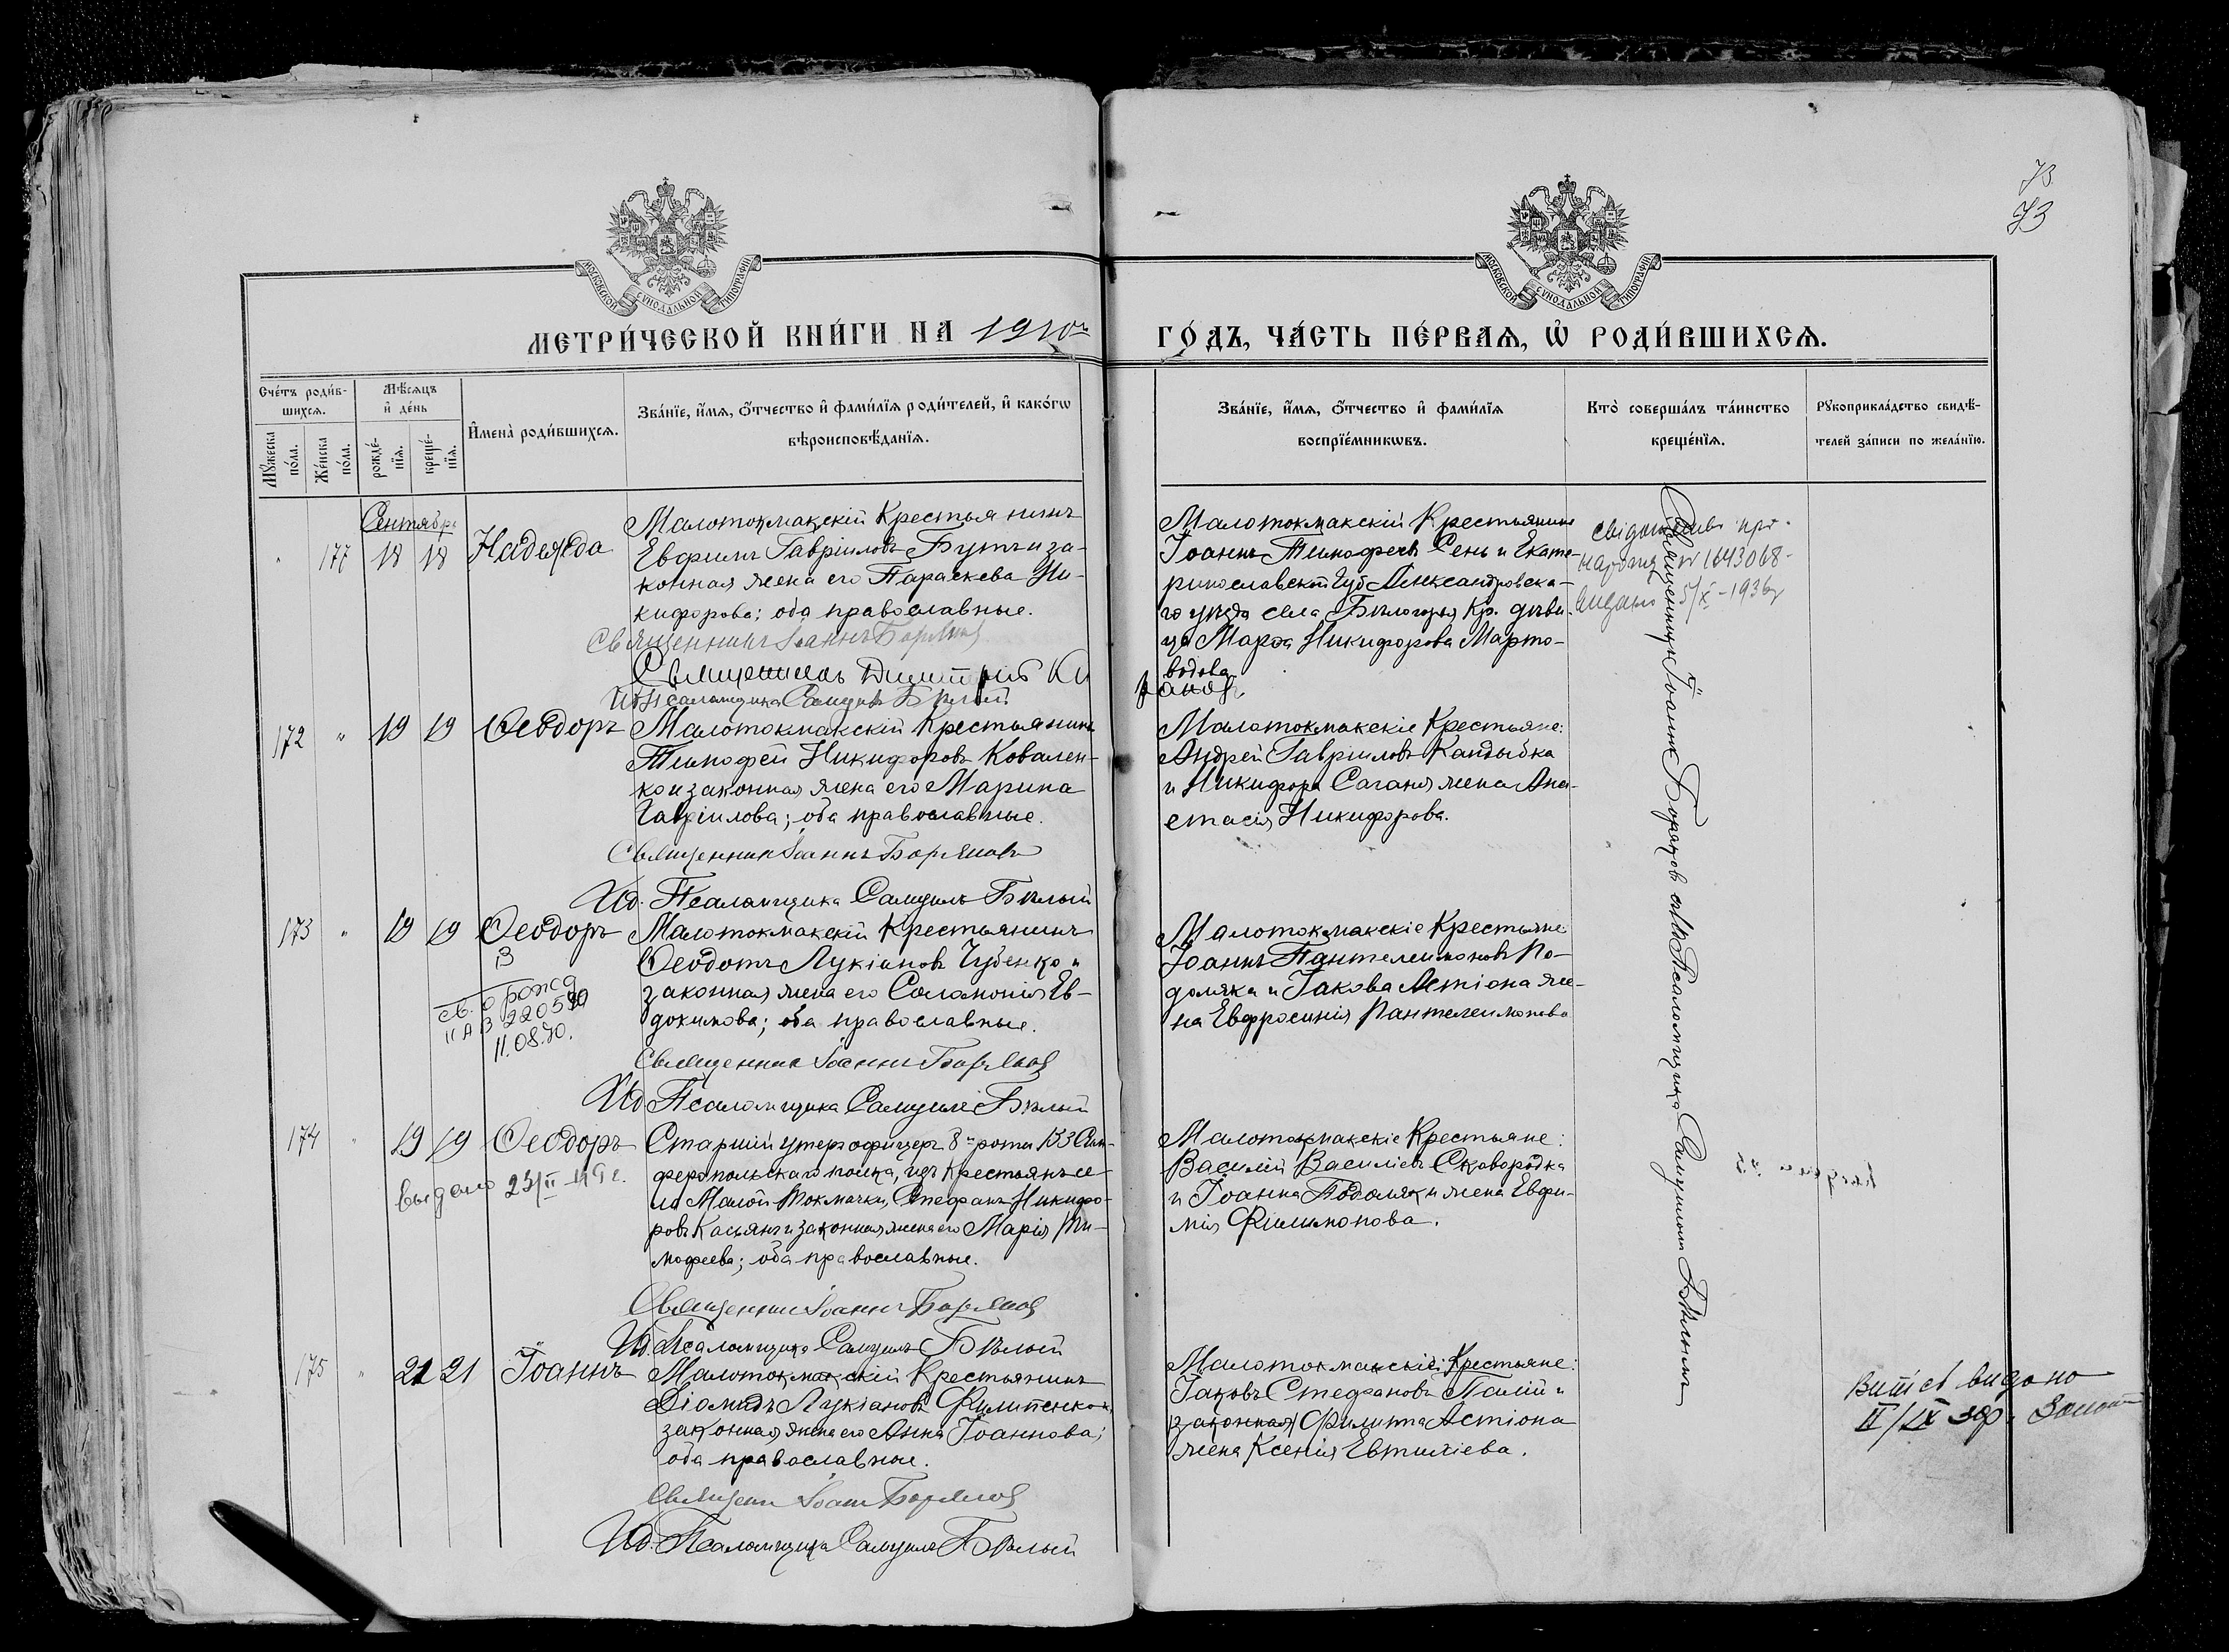 73
73
МОСКОВСКОЙ СѴНОДАЛЬНОЙ ТИПОГРАФІИ
МОСКОВСКОЙ СѴНОДАЛЬНОЙ ТИПОГРАФІИ
МЕТРИ́ЧЕСКОЙ КНИ́ГИ НА 1910й
ГО́ДЪ, ЧА́СТЬ ПЕ́РВАѦ, Ѡ҆ РОДИ́ВШИХСѦ.
Сче́тъ роди́в-
шихсѧ.
Мꙋ́жеска
по́ла.
Же́нска
по́ла.
Мѣ́сѧцъ
и҆ де́нь
рожде́-
нїѧ.
креще́-
нїѧ.
И҆мена̀ роди́вшихсѧ.
Зва́нїе, и҆́мѧ, ѻ҆́тчество и҆ фами́лїѧ роди́телей, и҆ како́гѡ
вѣроисповѣ́данїѧ.
Зва́нїе, и҆́мѧ, ѻ҆́тчество и҆ фами́лїѧ
воспрїе́мникѡвъ.
Кто̀ соверша́лъ та́инство
креще́нїѧ.
Рꙋкоприкла́дство свидѣ́-
телей за́писи по жела́нїю.
Сентябрь
" 177 18 18 Надежда
Малотокмакскій Крестьянинъ
Евфимъ Гавріиловъ Буть и за-
конная жена его Параскева Ни-
кифорова; оба православные.
Священникъ Іоаннъ Боряков
Священникъ Димитрій
И.д. Псаломщика Самуилъ Бѣлый
Малотокмакскій Крестьянинъ
Іоаннъ Тимофеевъ Сень и Екате-
ринославской Губ. Александровска-
го уѣзда села Бѣлогорья Кр. дѣви-
ца Марфа Никифорова Марто-
водова.
Свідоцтво про
народж N 1643068
видано 5/X - 1936
172 " 19 19 Ѳеодоръ
Малотокмакскій Крестьянинъ
Тимофей Никифоровъ Ковален-
ко и законная жена его Марина
Гавріилова; оба православные.
Священникъ Іоаннъ Боряковъ
И.д. Псаломщика Самуилъ Бѣлый
Малотокмакскіе Крестьяне:
Андрей Гавріиловъ Кандыбка
и Никифора Саганя жена Ана-
стасія Никифорова.
173 " 19 19 Ѳеодоръ
св. о рожд
II АВ 220590
11.08.70.
Малотокмакскій Крестьянинъ
Ѳеодотъ Лукіановъ Чубенко и
законная жена его Соломонія Ев-
докимова; оба православные.
Священник Іоаннъ Боряков
И.д. Псаломщика Самуилъ Бѣлый
Малотокмакскіе Крестьяне:
Іоаннъ Пантелеимоновъ По-
доляка и Іакова Астіона же-
на Евфросинія Пантелеимонова
174 " 19 19 Ѳеодоръ
выдано
Старшій унтерофицеръ 8й роты 133 Сим-
феропольскаго полка, изъ крестьянъ се-
ла Малой Токмачки, Стефанъ Никифо-
ровъ Касьянъ и законная жена его Марія Ти-
мофеева; оба православные.
Священник Іоаннъ Боряков
И.д. Псаломщика Самуилъ Бѣлый
Малотокмакскіе Крестьяне:
Василій Василіевъ Сковородка
и Іоанна Подоляки жена Евфи-
мія Филимонова.
175 " 21 21 Іоаннъ
Малотокмакскій Крестьянинъ
Діомидъ Лукіановъ Филипенко и
законная жена его Анна Іоаннова;
оба православные.
Священн Іоан Боряков
И.д. Псаломщика Самуилъ Бѣлый
Малотокмакскіе Крестьяне:
Іаковъ Стефановъ Палій и
законная Филиппа Астіона
жена Ксенія Евтихіева.
Священникъ Іоаннъ Боряковъ съ Псаломщика Самуиломъ Бѣлымъ
видано